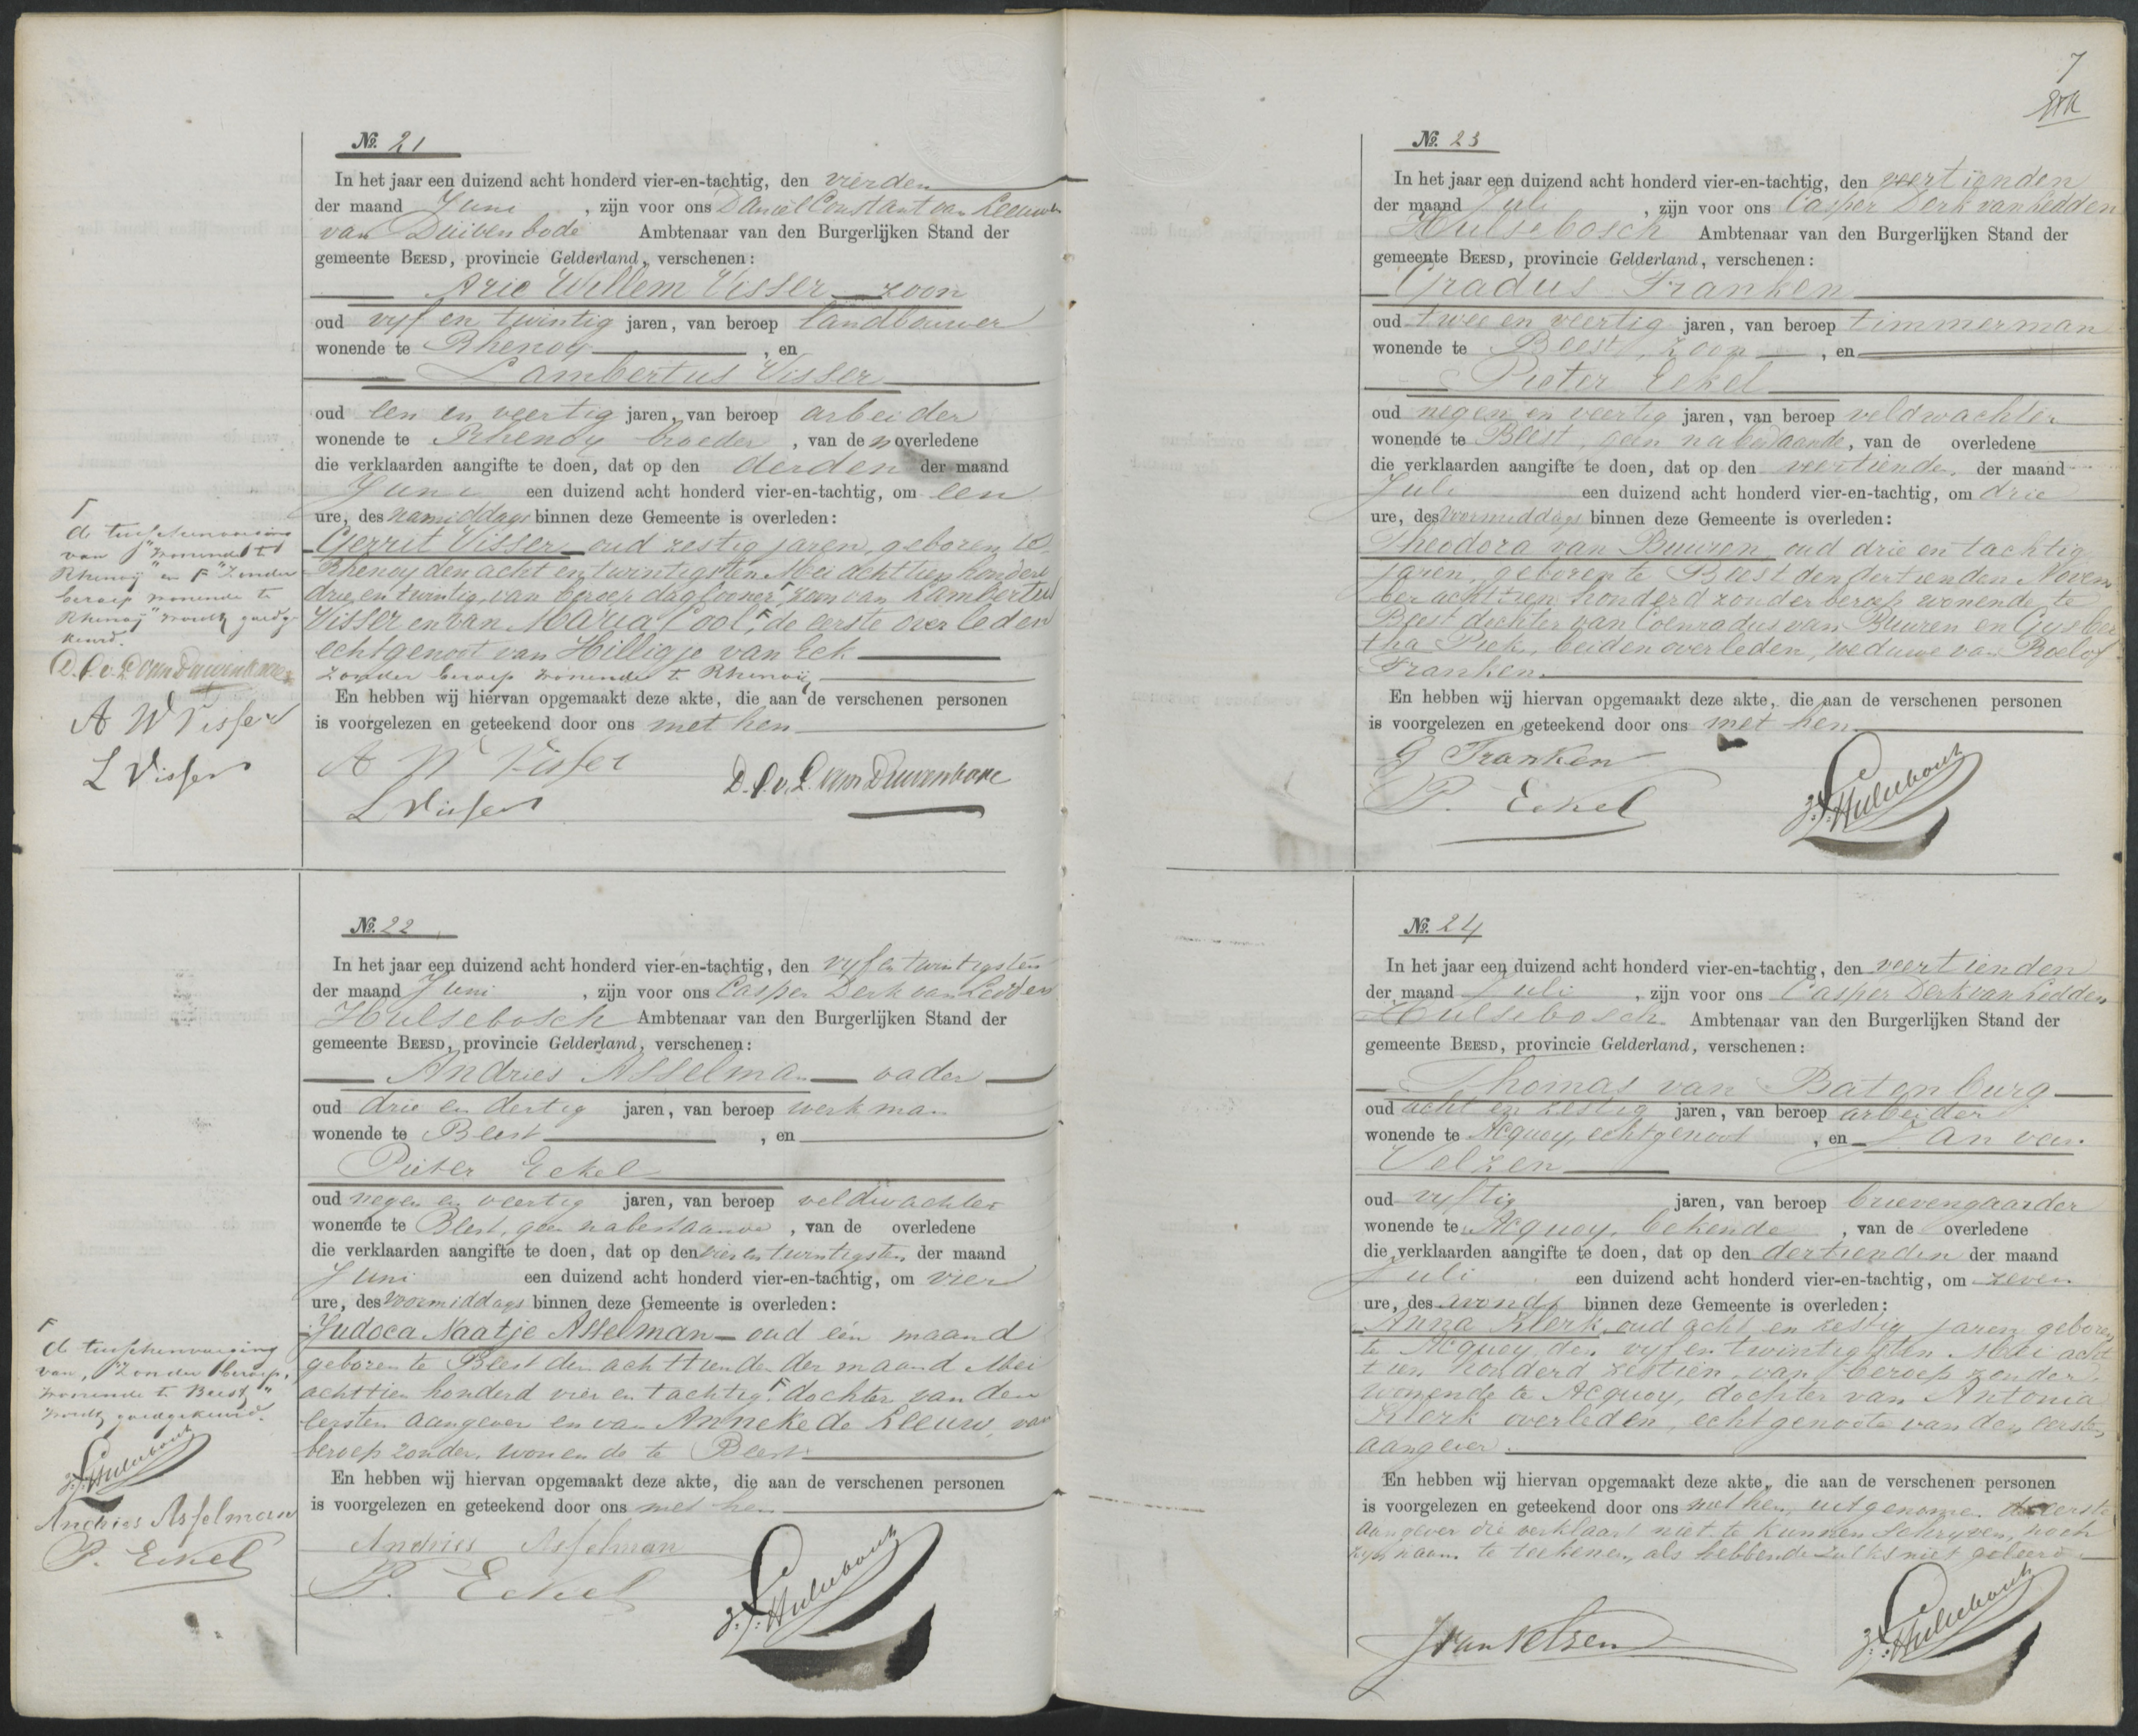 No. 21
In het jaar een duizend acht honderd vier-en-tachtig, den vierden
der maand Juni , zijn voor ons Daniël Constant van Leeuwen
van Duivenbode Ambtenaar van den Burgerlijken Stand der
gemeente BEESD, provincie Gelderland, verschenen:
Arie Willem Visser zoon
oud vyf en twintig jaren, van beroep landbouwer
wonende te Rhenoy , en
Lambertus Visser
oud een en veertig jaren, van beroep arbeider
wonende te Rhenoy broeder , van den overledene
die verklaarden aangifte te doen, dat op den derden der maand
Juni een duizend acht honderd vier-en-tachtig, om een
ure, des namiddags binnen deze Gemeente is overleden:
Gerrit Visser oud zestig jaren, geboren te
Rhenoy den acht en twintigsten Mei achttien honderd
drie en twintig, van beroep daglooner, zoon van Lambertus
Visser en van Maria Cool, de eerste overleden
echtgenoot van Hilligje van Eck
zonder beroep wonende te Rhenoij
En hebben wij hiervan opgemaakt deze akte, die aan de verschenen personen
is voorgelezen en geteekend door ons met hen
A W Visser
L Visser
D.C.v.L. van Duivenbode
de tusschenvoeging
van "wonende te
Rhenoij" en "zonder
beroep wonende te
Rhenoij" wordt goedge-
keurd.
D.C.v.L. van Duivenbode
A W Visser
L Visser
No. 22
In het jaar een duizend acht honderd vier-en-tachtig, den vyf en twintigsten
der maand Juni , zijn voor ons Casper Derk van Ledden
Hulsebosch Ambtenaar van den Burgerlijken Stand der
gemeente BEESD, provincie Gelderland, verschenen:
Andries Asselman vader
oud drie en dertig jaren, van beroep werkman
wonende te Beest , en
Pieter Eckel
oud negen en veertig jaren, van beroep veldwachter
wonende te Beest, geen nabestaande , van de overledene
die verklaarden aangifte te doen, dat op den vier en twintigsten der maand
Juni een duizend acht honderd vier-en-tachtig, om vier
ure, des voormiddags binnen deze Gemeente is overleden:
Judoca Naatje Asselman oud één maand
geboren te Beest den achttienden der maand Mei
achttien honderd vier en tachtig dochter van den
eersten aangever en van Anneke de Leeuw, van
beroep zonder, wonende te Beest
En hebben wij hiervan opgemaakt deze akte, die aan de verschenen personen
is voorgelezen en geteekend door ons met hen
Andries Asselman
P. Eckel
Hulsebosch
de tusschenvoeging
van "zonder beroep,
wonende te Beest"
wordt goedgekeurd.
Hulsebosch
Andries Asselman
P. Eckel
7
No. 23
In het jaar een duizend acht honderd vier-en-tachtig, den veertienden
der maand Juli , zijn voor ons Casper Derk van Ledden
Hulsebosch Ambtenaar van den Burgerlijken Stand der
gemeente BEESD, provincie Gelderland, verschenen:
Gradus Franken
oud twee en veertig jaren, van beroep timmerman
wonende te Beest, zoon , en
Pieter Eckel
oud negen en veertig jaren, van beroep veldwachter
wonende te Beest, geen nabestaande , van de overledene
die verklaarden aangifte te doen, dat op den veertienden der maand
Juli een duizend acht honderd vier-en-tachtig, om drie
ure, des voormiddags binnen deze Gemeente is overleden:
Theodora van Buuren oud drie en tachtig
jaren, geboren te Beest den dertienden Novem
ber achttien honderd zonder beroep wonende te
Beest dochter van Coenradus van Buuren en Gysber
tha Piek, beiden overleden, weduwe van Roelof
Franken.
En hebben wij hiervan opgemaakt deze akte, die aan de verschenen personen
is voorgelezen en geteekend door ons met hen
G Franken
P. Eckel
Hulsebosch
No. 24
In het jaar een duizend acht honderd vier-en-tachtig, den veertienden
der maand Juli , zijn voor ons Casper Derk van Ledden
Hulsebosch Ambtenaar van den Burgerlijken Stand der
gemeente BEESD, provincie Gelderland, verschenen:
Thomas van Batenburg
oud acht en zestig jaren, van beroep arbeider
wonende te Acquoy, echtgenoot , en Jan van
Velzen
oud vyftig jaren, van beroep brievengaarder
wonende te Acquoy, bekende , van de overledene
die verklaarden aangifte te doen, dat op den dertienden der maand
Juli een duizend acht honderd vier-en-tachtig, om zeven
ure, des avonds binnen deze Gemeente is overleden:
Anna Klerk, oud acht en zestig jaren geboren
te Acquoy, den vyf en twintigsten Mei acht
tien honderd zestien, van beroep zonder,
wonende te Acquoy, dochter van Antonia
Klerk overleden, echtgenoote van den eersten
aangever.
En hebben wij hiervan opgemaakt deze akte, die aan de verschenen personen
is voorgelezen en geteekend door ons met hen, uitgenomen de eerste
aangever die verklaart niet te kunnen schryven, noch
zyn naam te teekenen, als hebbende zulks niet geleerd
J van Velzen
Hulsebosch